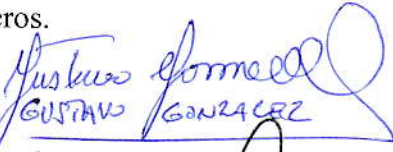 eros.
Gustavo Gonzalez
GUSTAVO GONZALEZ